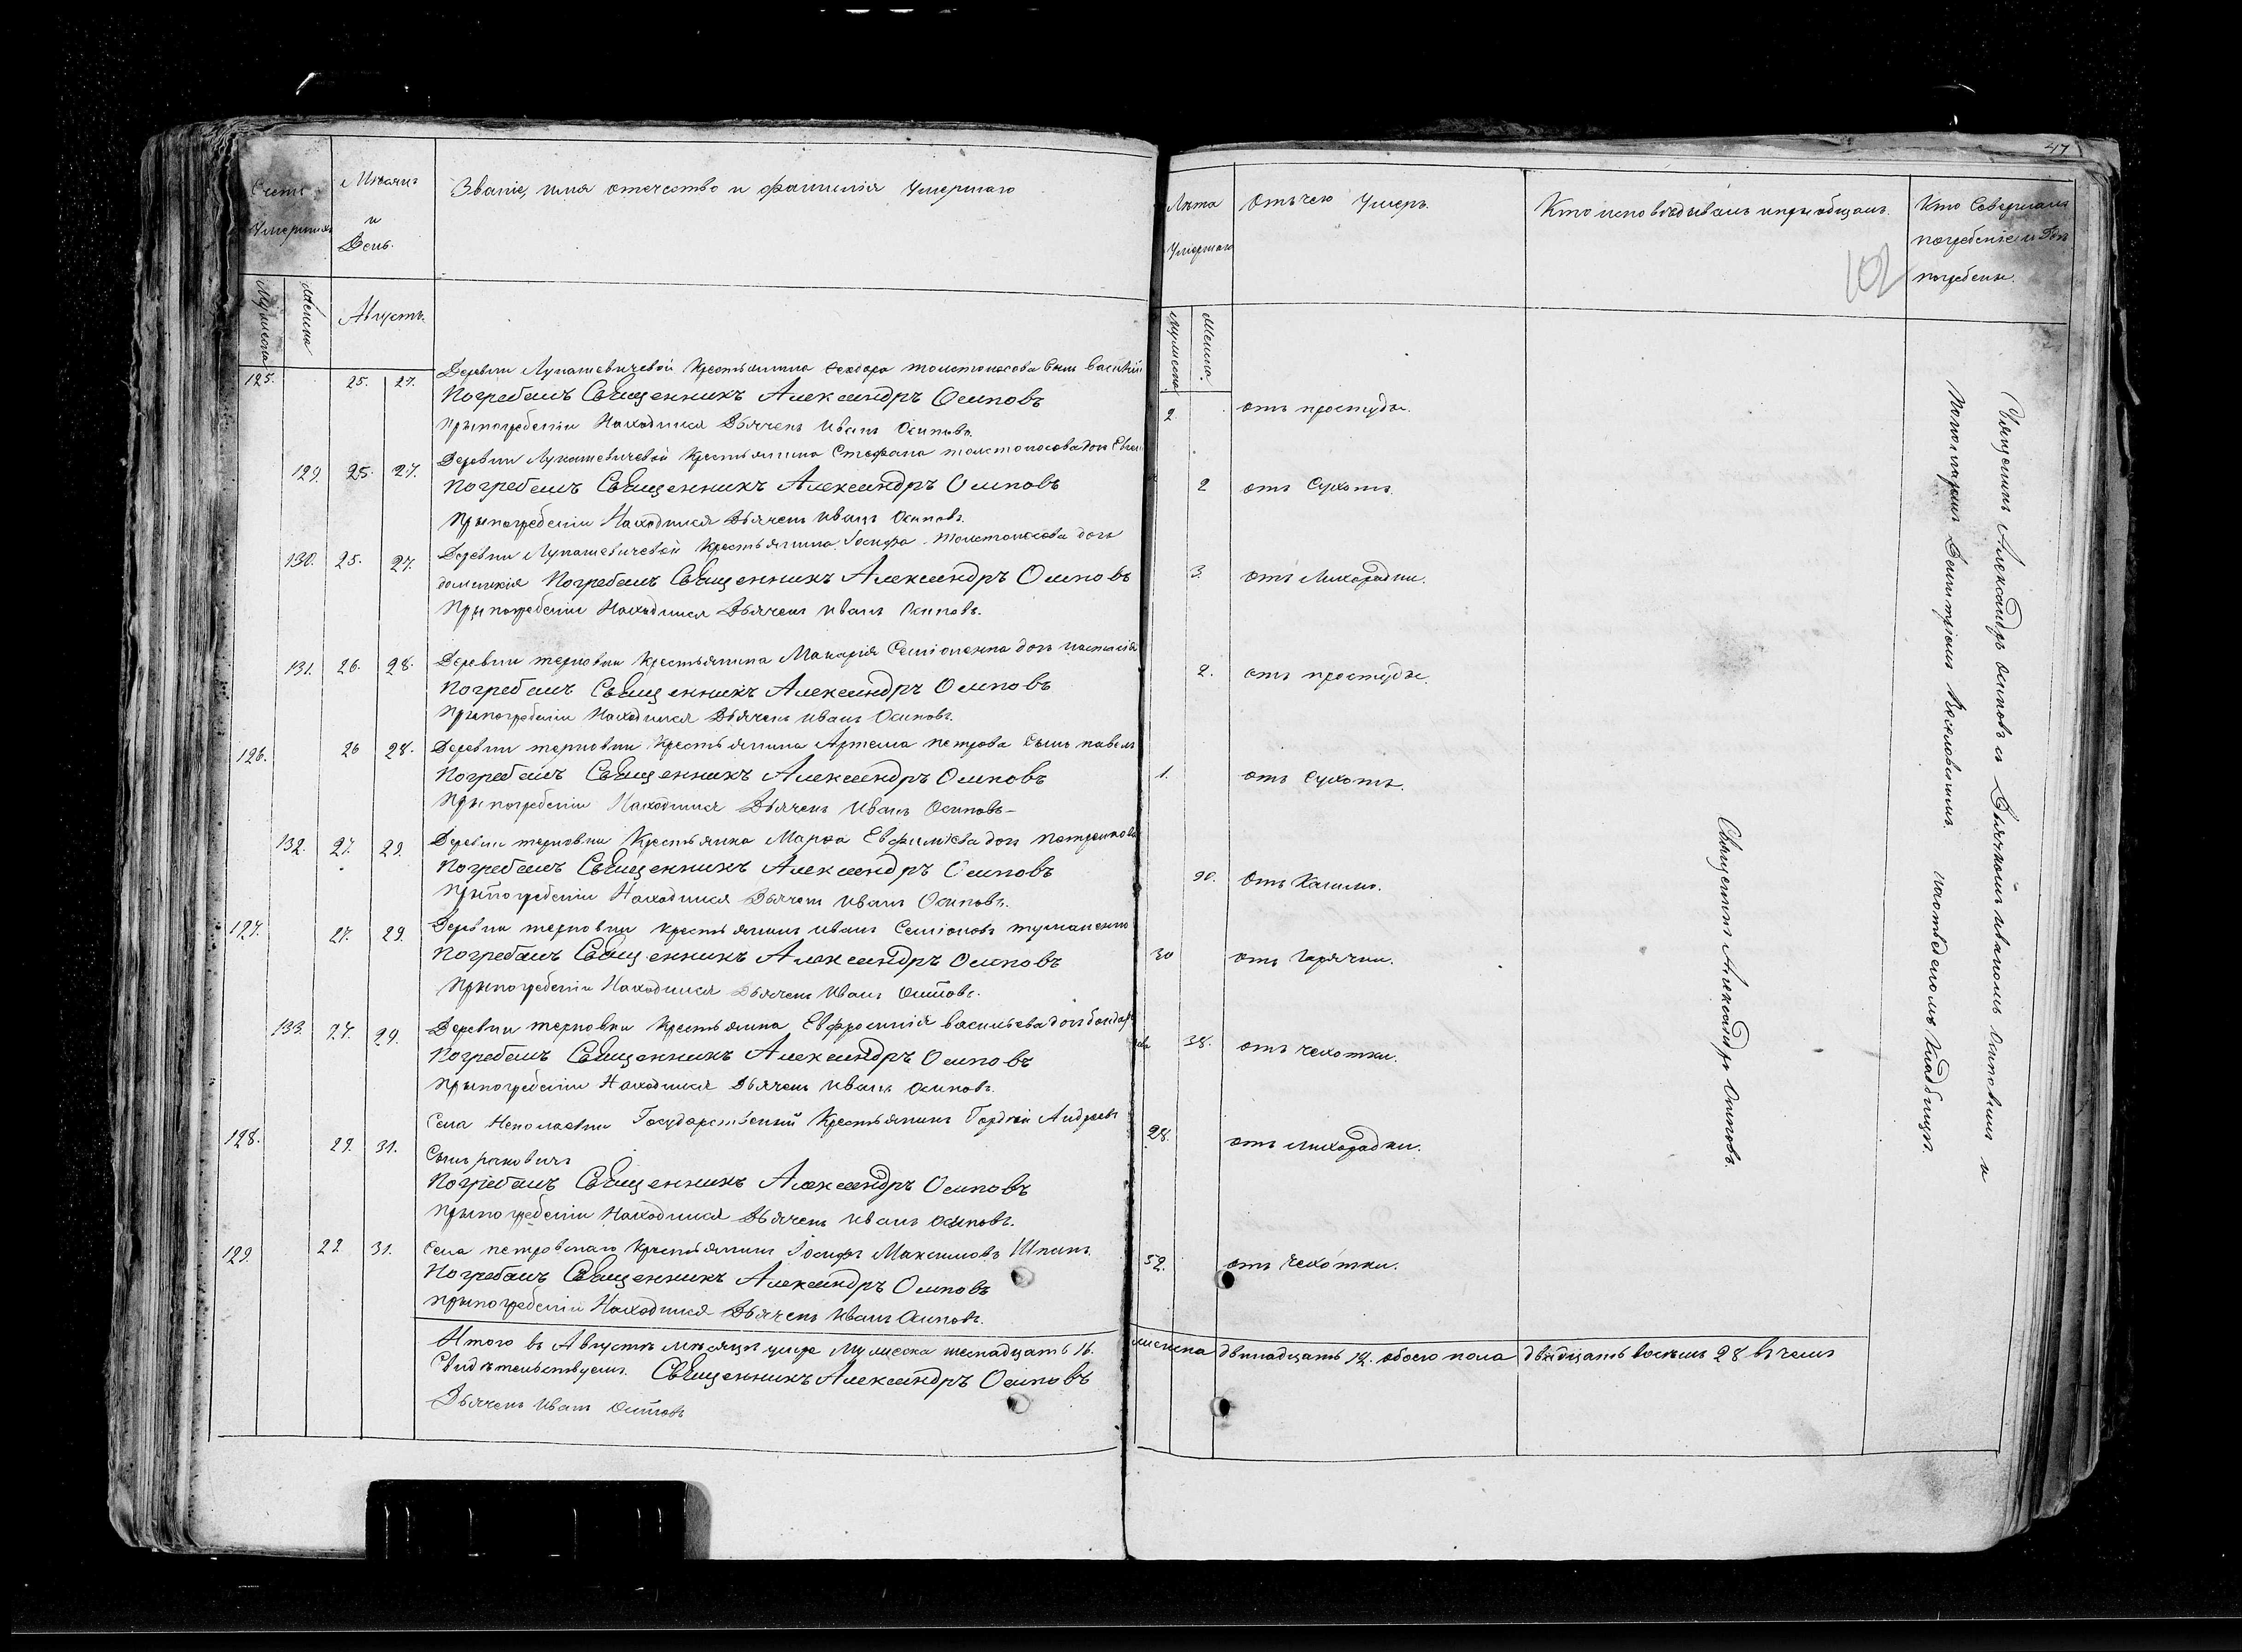 Счетъ Умершихъ
Мѣсяцъ и День.
Званіе, имя отечество и фамилія Умершаго
Мужеска
Женска
Августъ.
125. 25. 27. Деревни Лукашевичевой Крестьянина Феодора толстоносова сынъ Василій
Погребалъ Священникъ Александръ Осиповъ
Прыпогребеніи Находился Дьячекъ Иванъ Осиповъ.
129. 25. 27. Деревни Лукашевичевой Крестьянина Стефана толстоносова дочь
Погребалъ Священникъ Александръ Осиповъ
Прыпогребеніи Находился Дьячекъ Иванъ Осиповъ.
130. 25. 27. Деревни Лукашевичевой Крестьянина Іосифа толстоносова дочь
домникія Погребалъ Священникъ Александръ Осиповъ
Пры погребеніи Находился Дьячекъ Иванъ Осиповъ.
131. 26. 28. Деревни терновки Крестьянина Макарія Семіоненка дочь
Погребалъ Священникъ Александръ Осиповъ
Прыпогребеніи Находился Дьячекъ Иванъ Осиповъ.
126. 26 28. Деревни терновки Крестьянина Артема петрова сынъ павелъ
Погребалъ Священникъ Александръ Осиповъ
Прыпогребеніи Находился Дьячекъ Иванъ Осиповъ
132. 27. 29. Деревни терновки Крестьянка Марфа Евфиміева дочь
Погребалъ Священникъ Александръ Осиповъ
Прыпогребеніи Находился Дьячекъ Иванъ Осиповъ.
127. 27. 29. Деревни терновки крестьянинъ иванъ Семіоновъ туманенко
Погребалъ Священникъ Александръ Осиповъ
Прыпогребеніи Находился Дьячекъ Иванъ Осиповъ.
133. 27. 29. Деревни терновки Крестьянка Евфросинія васильева дочь
Погребалъ Священникъ Александръ Осиповъ
Прыпогребеніи Находился Дьячекъ Иванъ Осиповъ.
128. 29. 31. Села Государственый Крестьянинъ Гордѣй Андреевъ
Сынъ
Погребалъ Священникъ Александръ Осиповъ
Прыпогребеніи Находился Дьячекъ Иванъ Осиповъ.
129. 29 31. Села петровскаго Крестьянинъ Іосифъ Максимовъ Шпакъ.
Погребалъ Священникъ Александръ Осиповъ
Прыпогребеніи Находился Дьячекъ Иванъ Осиповъ.
Итого въ Августѣ мѣсяцѣ умре Мужеска шеснадцать 16.
Свидѣтельствуемъ. Священникъ Александръ Осиповъ
Дьячекъ Иванъ Осиповъ
47
Лѣта Умершаго
Отъ чего Умеръ.
Кто исповѣдывалъ ипрыобщалъ.
Кто Совершалъ погребеніе и Гдѣ погребены.
102
Мужеска
Женска.
2. отъ простуды.
2 отъ Сухотъ.
3. отъ Лихорадки.
2. отъ простуды.
1. отъ Сухотъ.
90. отъ Кашлю.
30 отъ Горячки.
38. отъ чехотки.
28. отъ лихорадки.
52. отъ чехотки.
Священникъ Александръ Осиповъ.
Священникъ Александръ Осиповъ съ Дьячкомъ иваномъ Осиповымъ и
Пономаремъ Димитріемъ Кословскимъ. Кладбищѣ.
женска двенадцать 12. обоего пола двадцать восемь 28 въ чемъ